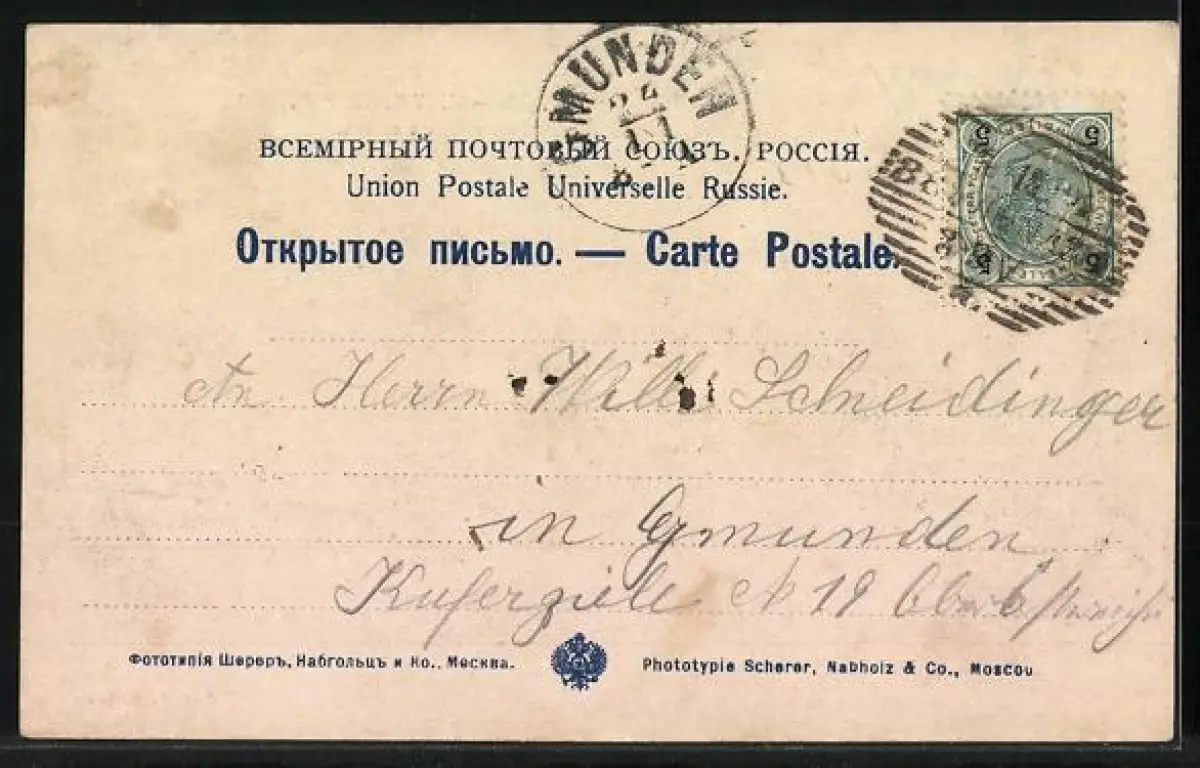 GMUNDEN
24
ВСЕМІРНЫЙ ПОЧТОВЫЙ СОЮЗЪ. РОССІЯ.
Union Postale Universelle Russie.
Открытое письмо. — Carte Postale.
5 5
5 5
An Herrn Willi Schneidinger
in Gmunden
№ 19
Фототипія Шереръ, Набгольцъ и Ко., Москва.
Phototypie Scherer, Nabholz & Co., Moscou